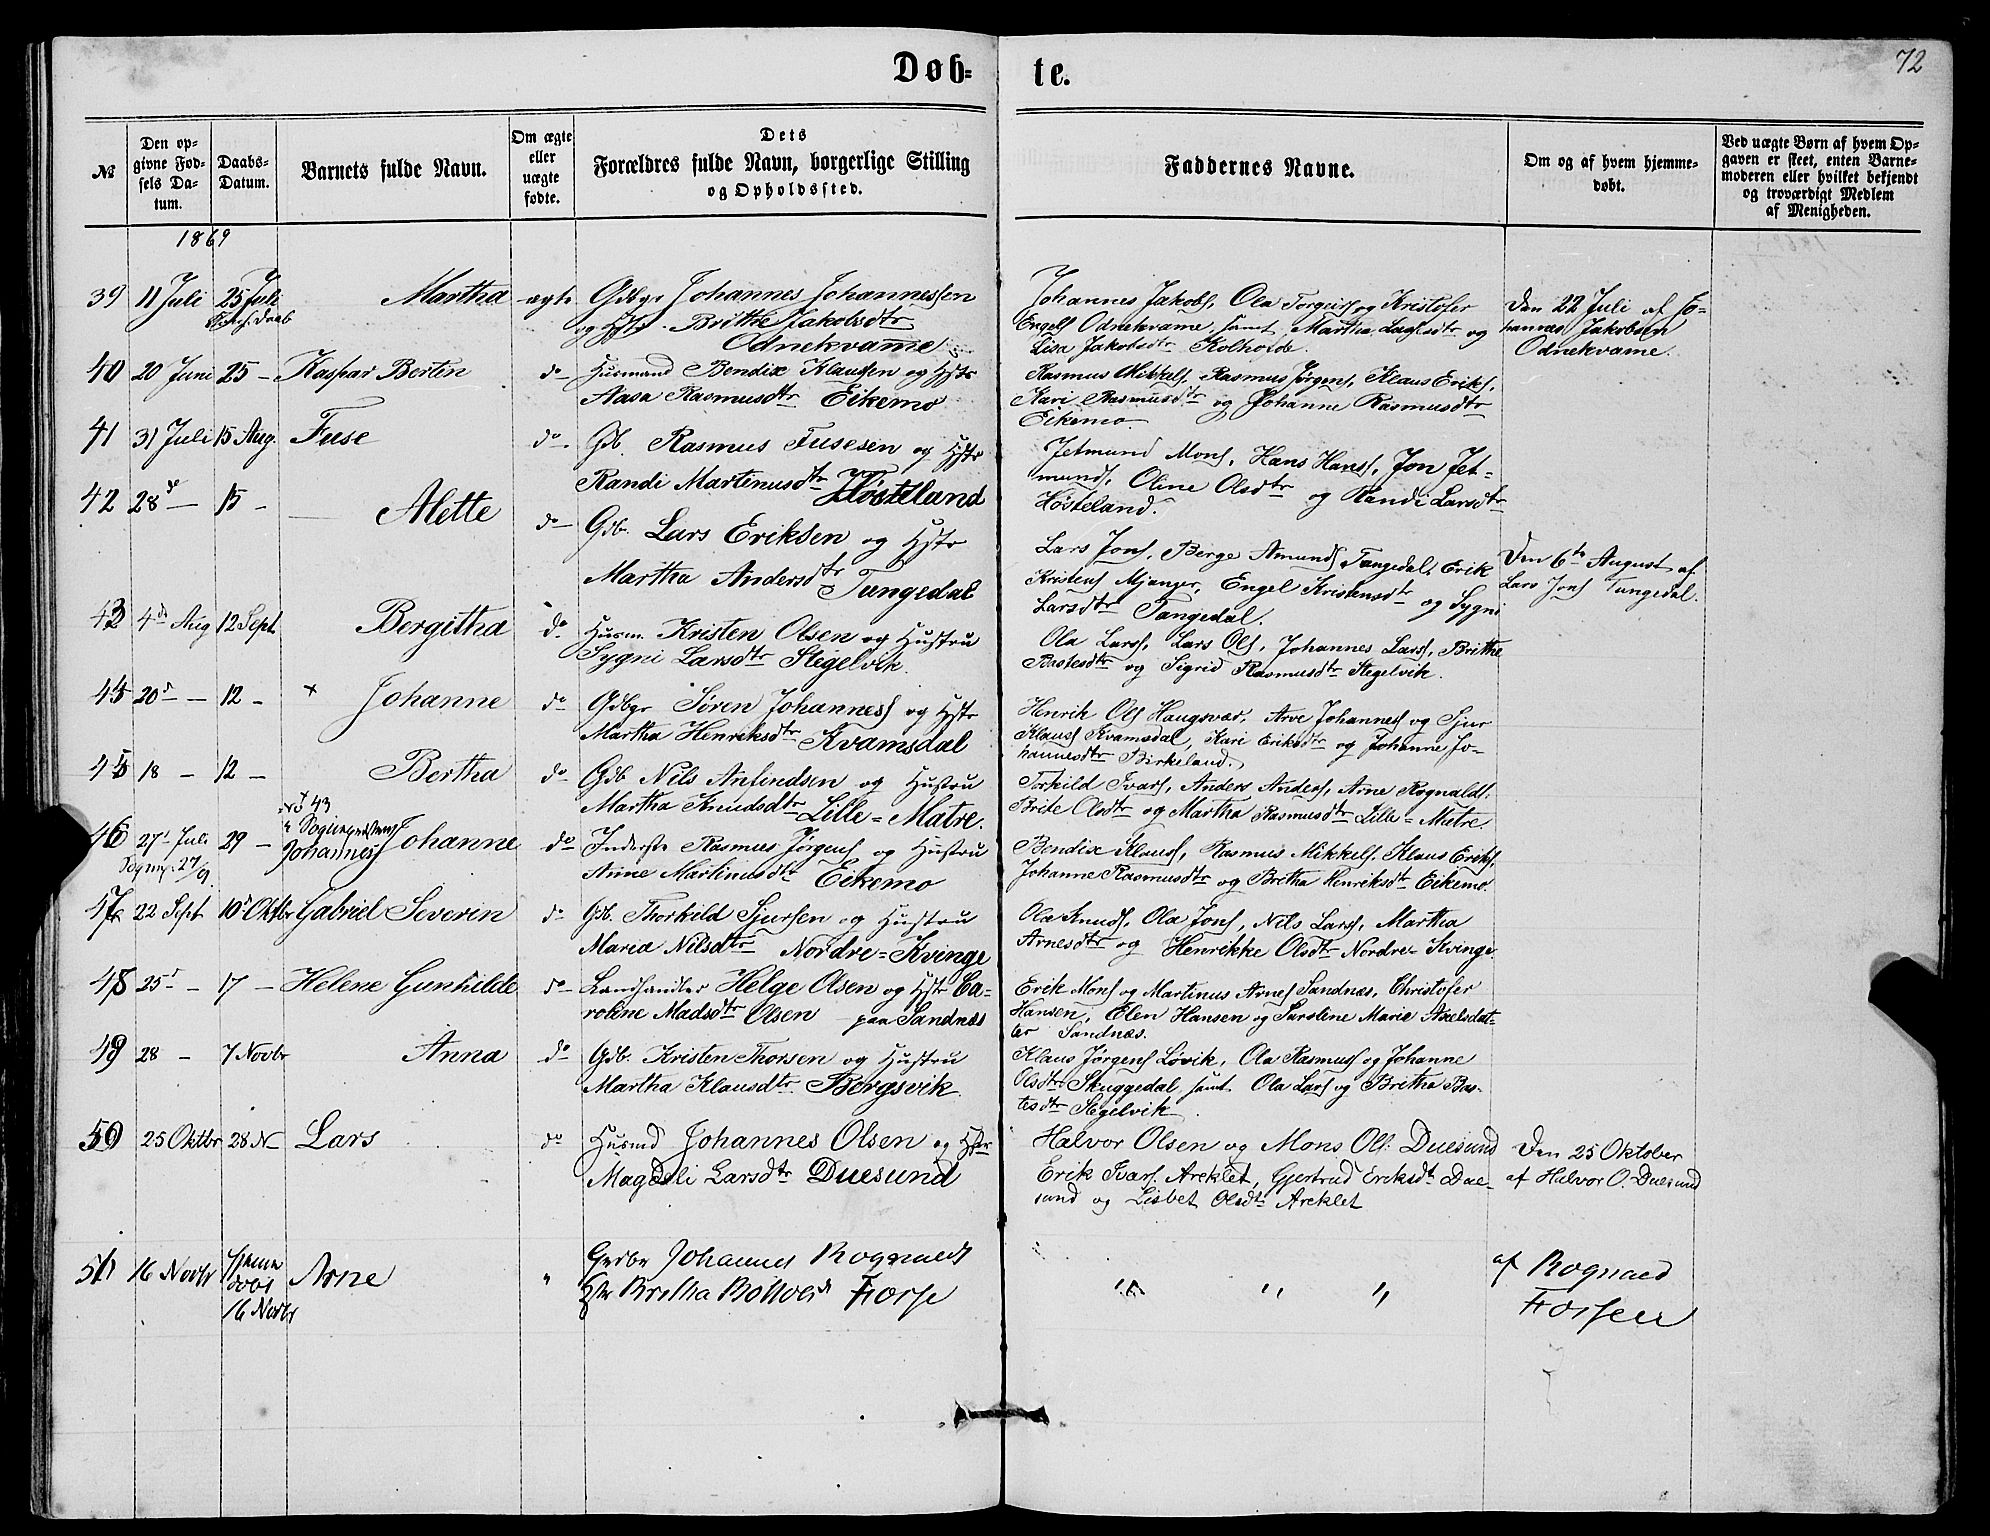 Døb= te.
72
№
Den op-
givne Fød-
sels Da-
tum.
Daabs-
Datum.
Barnets fulde Navn.
Om ægte
eller
uægte
fødte.
Dets
Forældres fulde Navn, borgerlige Stilling
og Opholdssted.
Faddernes Navne.
Om og af hvem hjemme-
døbt.
Ved uægte Børn af hvem Op-
gaven er skeet, enten Barne-
moderen eller hvilket bekjendt
og troværdigt Medlem
af Menigheden.
1869
39 11 Juli 25 Juli Martha ægte Gdbgr Johannes Johannessen
og Hstr. Brithe Jakobsdtr
Odnekvame
Johannes Jakobs, Ola Torgeirs og Kristofer
Engels Odnekvame, samt Martha Larsdtr og
Lisa Jakobsdtr Kolholde.
Den 22 Juli af Jo-
hannes Jakobsen
Odnekvame.
40 20 Juni 25 - Kaspar Bertin do Husmand Bendix Klaussen og Hstr
Aasa Rasmusdtr Eikemo
Rasmus Mikkels, Rasmus Jørgens, Klaus Eriks,
Kari Rasmusdtr og Johanne Rasmusdtr
Eikemo.
41 31 Juli 15 Aug. Fuse do. Gb. Rasmus Fusesen og Hstr
Randi Martinusdtr Høsteland
Jetmund Mons, Hans Hans, Jon Jet-
munds, Oline Olsdtr og Randi Larsdtr
Høsteland.
42 28 do - 15 - Alette do - Gdb. Lars Eriksen og Hstr
Martha Andersdtr Tungedal
Lars Jons, Berge Amunds Tangedal, Erik
Kristens Mjanger, Engel Kristensdtr og Sygni
Larsdtr Tangedal.
Den 6te August af
Lars Jons Tungedal.
43 4de Aug 12 Sept Bergitha do Husm. Kristen Olsen og Hustru
Sygni Larsdtr Stegelvik.
Ola Lars, Lars Ols, Johannes Lars, Brithe
Bastesdtr og Sigrid Rasmusdtr Stegelvik.
45 20 d - 12 - + Johanne do Gdbgr Søren Johannes og Hstr
Martha Henriksdtr Kvamsdal
Henrik Ols Haugsvær, Arve Johannes og Sjur
Klaus Kvamsdal, Kari Eriksdtr og Johanne Jo-
hannesdtr Birkeland.
45 18 - 12 - Bertha do Gdb Nils Anfindsen og Hustru
Martha Knudsdtr Lille=Matre.
Torkild Ivars, Anders Anders, Arne Rognalds,
Brite Olsdtr og Martha Rasmusdtr Lille=Matre.
No 43
Johannes
46 27 Juli 29 - Johanne do Inderste Rasmus Jørgens og Hustru
Anne Martinusdtr Eikemo
Bendix Klaus, Rasmus Mikkels, Klaus Eriks,
Johanne Rasmusdtr og Bretha Henriksdtr Eikemo.
47 22 Sept 10 Oktbr Gabriel Severin do Gdb. Thorkild Sjursen og Hustru
Maria Nilsdtr Nordre=Kvinge
Ola Knuds, Ola Jons, Nils Lars, Martha
Arnesdtr og Henrikke Olsdtr Nordre=Kvinge.
48 25 - 17 - Helene Gunhilde do - Landhandler Helge Olsen og Hstr Ca-
roline Madsdtr Olsen paa Sandnæs
Erik Mons og Martinus Arnes Sandnæs, Christofer
Hansen, Elen Hansen og Karoline Marie Axelsdat-
ter Sandnæs.
49 28 - 7 Novbr Anna do - Gdb. Kristen Thorsen og Hustru
Martha Klausdtr. Bergsvik.
Klaus Jørgens Løvik, Ola Rasmus og Johanne
Olsdtr Skuggedal, samt Ola Lars og Bretha Bas-
tesdtr Stegelvik.
50 25 Oktbr 28 N Lars do Husmd Johannes Olsen og Hstr
Magdeli Larsdtr Duesund
Halvor Olsen og Mons Ols: Duesund
Erik Ivars. Areklet, Gjertrud Eriksdtr Due-
sund og Lisbet Olsdtr Areklet
Den 25 Oktober
af Halvor O. Duesund
51 16 Novbr Hjemme
døbt
16 Novbr Arne " Grdbr Johannes Rognaldss
Hstr Bretha Bottolfsd Forse
" " "
af Rognald
Forseen